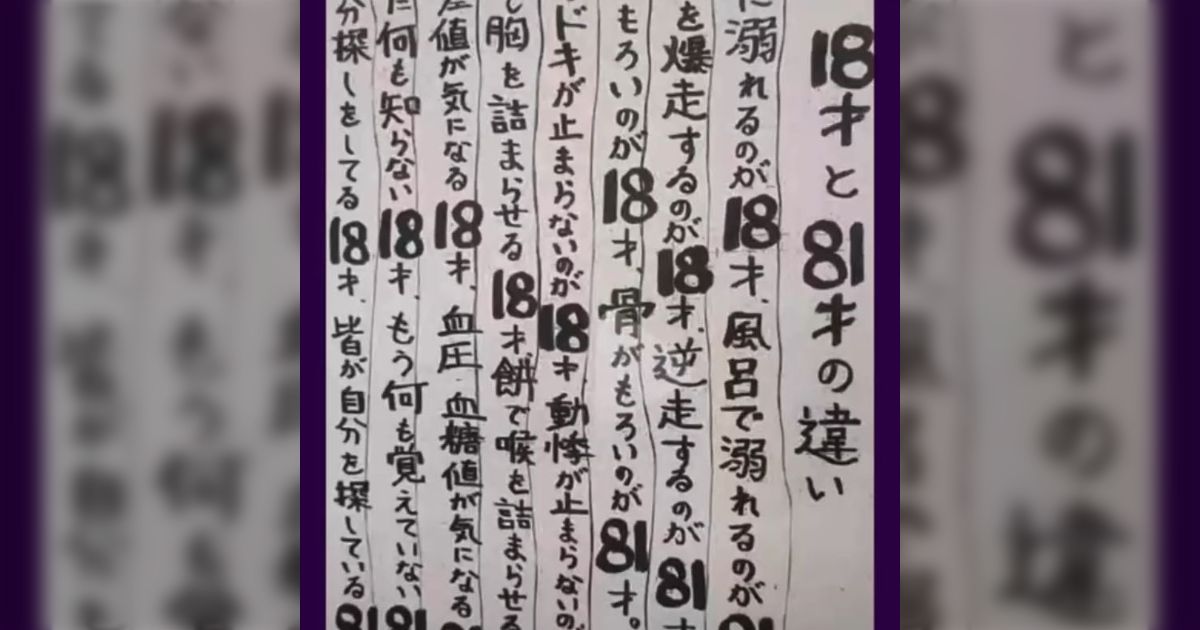 18才と81才の違い
に溺れるのが18才、風呂で溺れるのが81
を爆走するのが18才、逆走するのが81才
もろいのが18才、骨がもろいのが81才。
ドキが止まらないのが18才動悸が止まらないの
胸を詰まらせる18才、餅で喉を詰まらせる
値が気になる18才、血圧血糖値が気になる
何も知らない18才、もう何も覚えていない81
分探しをしてる18才、皆が自分を探している81